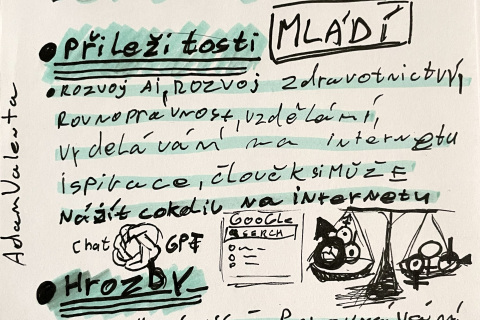 MLÁDÍ
• Příležitosti
• ROZVOJ AI, ROZVOJ zdravotnictví,
ROVNOPRAVNOST, VZDĚLÁNÍ,
vydelávání na internetu
ispirace, člověk si MůžE
NáŽít cokoliv na internetu
Chat GPT
GOOGLE
SEARCH
• Hrozby
Adam Valenta